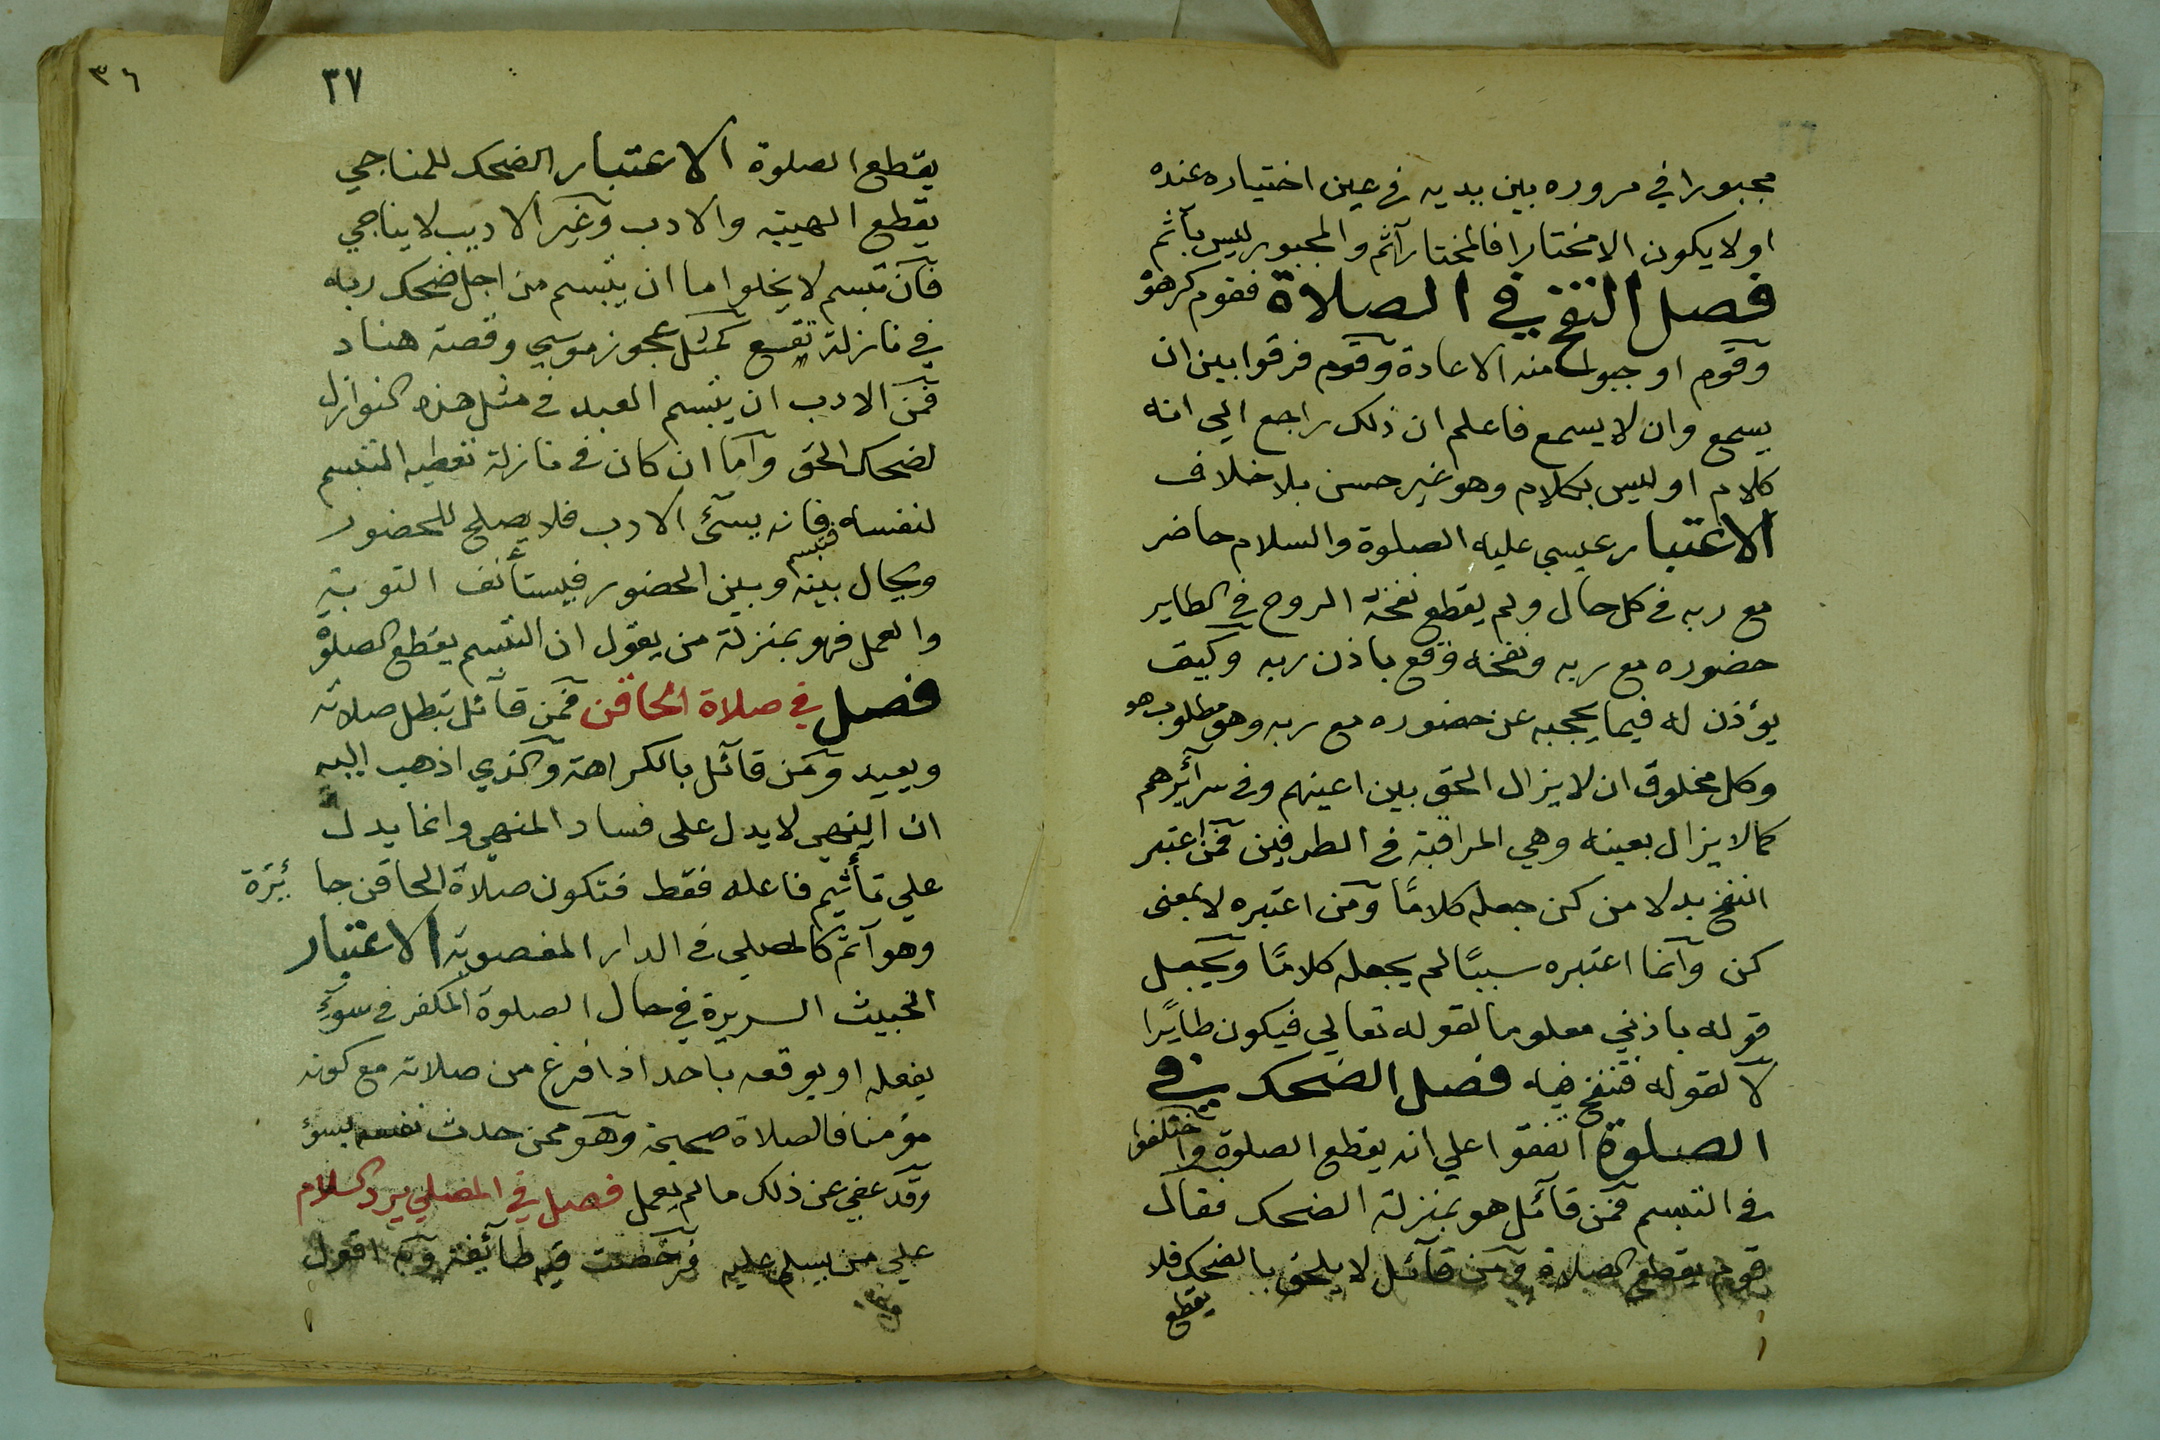 مجبورا في مروره بين يديه في عين اختياره عنده
او لا يكون الا مختارا فالمختار آثم والمجبور ليس بآثم
فصل النفخ في الصلاة فقوم كرهوه
وقوم اوجبوا منه الاعادة وقوم فرقوا بين ان
يسمع وان لا يسمع فاعلم ان ذلك راجع الي انه
كلام او ليس بكلام وهو غير حسن بلا خلاف
الاعتبار عيسي عليه الصلوة والسلام حاضر
مع ربه في كل حال ولم يقطع نفخة الروح في الطاير
حضوره مع ربه ونفخه وقع باذن ربه وكيف
يؤذن له فيما يحجبه عن حضوره مع ربه وهو مطلوب هو
وكل مخلوق ان لا يزال الحق بين اعينهم وفي سرآئرهم
كما لا يزال بعينه وهي المراقبة في الطرفين فمن اعتبر
النفخ بدلا من كن جعله كلامًا ومن اعتبره لا بمعنى
كن وآنما اعتبره سببًا لم يجعله كلامًا ويجعل
قوله باذني معلوما لقوله تعالي فيكون طايرًا
لا لقوله فتنفخ فيه فصل الضحك في
الصلوة اتفقوا علي انه يقطع الصلوة واختلفوا
في التبسم فمن قآئل هو بمنزلة الضحك فقال
قوم يقطع الصلاة ومن قآئل لا يلحق بالضحك فلا
يقطع
٣٦
٣٧
يقطع الصلوة الاعتبار الضحك للمناجي
يقطع الهيبة والادب وغير الاديب لا يناجي
فآن تبسم لا يخلوا اما ان يتبسم من اجل ضحك ربه
في نازلة تقع كمثل عجوز موسي وقصة هناد
فمن الادب ان يتبسم العبد في مثل هذه النوازل
لضحك الحق وآما ان كان في نازلة تعطيه التبسم
لنفسه فتبسم فانه يسئ الادب فلا يصلح للحضور
ويحال بينه وبين الحضور فيستأنف التوبة
والعمل فهو بمنزلة من يقول ان التبسم يقطع الصلوة
فصل في صلاة الحاقن فمن قآئل تبطل صلاته
ويعيد ومن قآئل بالكراهة والذي اذهب اليه
ان النهي لا يدل على فساد المنهي وانما يدل
علي تأثيم فاعله فقط فتكون صلاة الحاقن جا ئزة
وهو آثم كالمصلي في الدار المغصوبة الاعتبار
الخبيث السريرة في حال الصلوة المكفر في سوء
يفعله او يوقعه باحد اذا فرغ من صلاته مع كونه
مؤمنا فالصلاة صحيحة وهو ممن حدث نفسه بسوء
وقد عفي عن ذلك ما لم يعمل فصل في المصلي يرد السلام
علي من يسلم عليه فرخصت فيه طآئفة وبه اقول